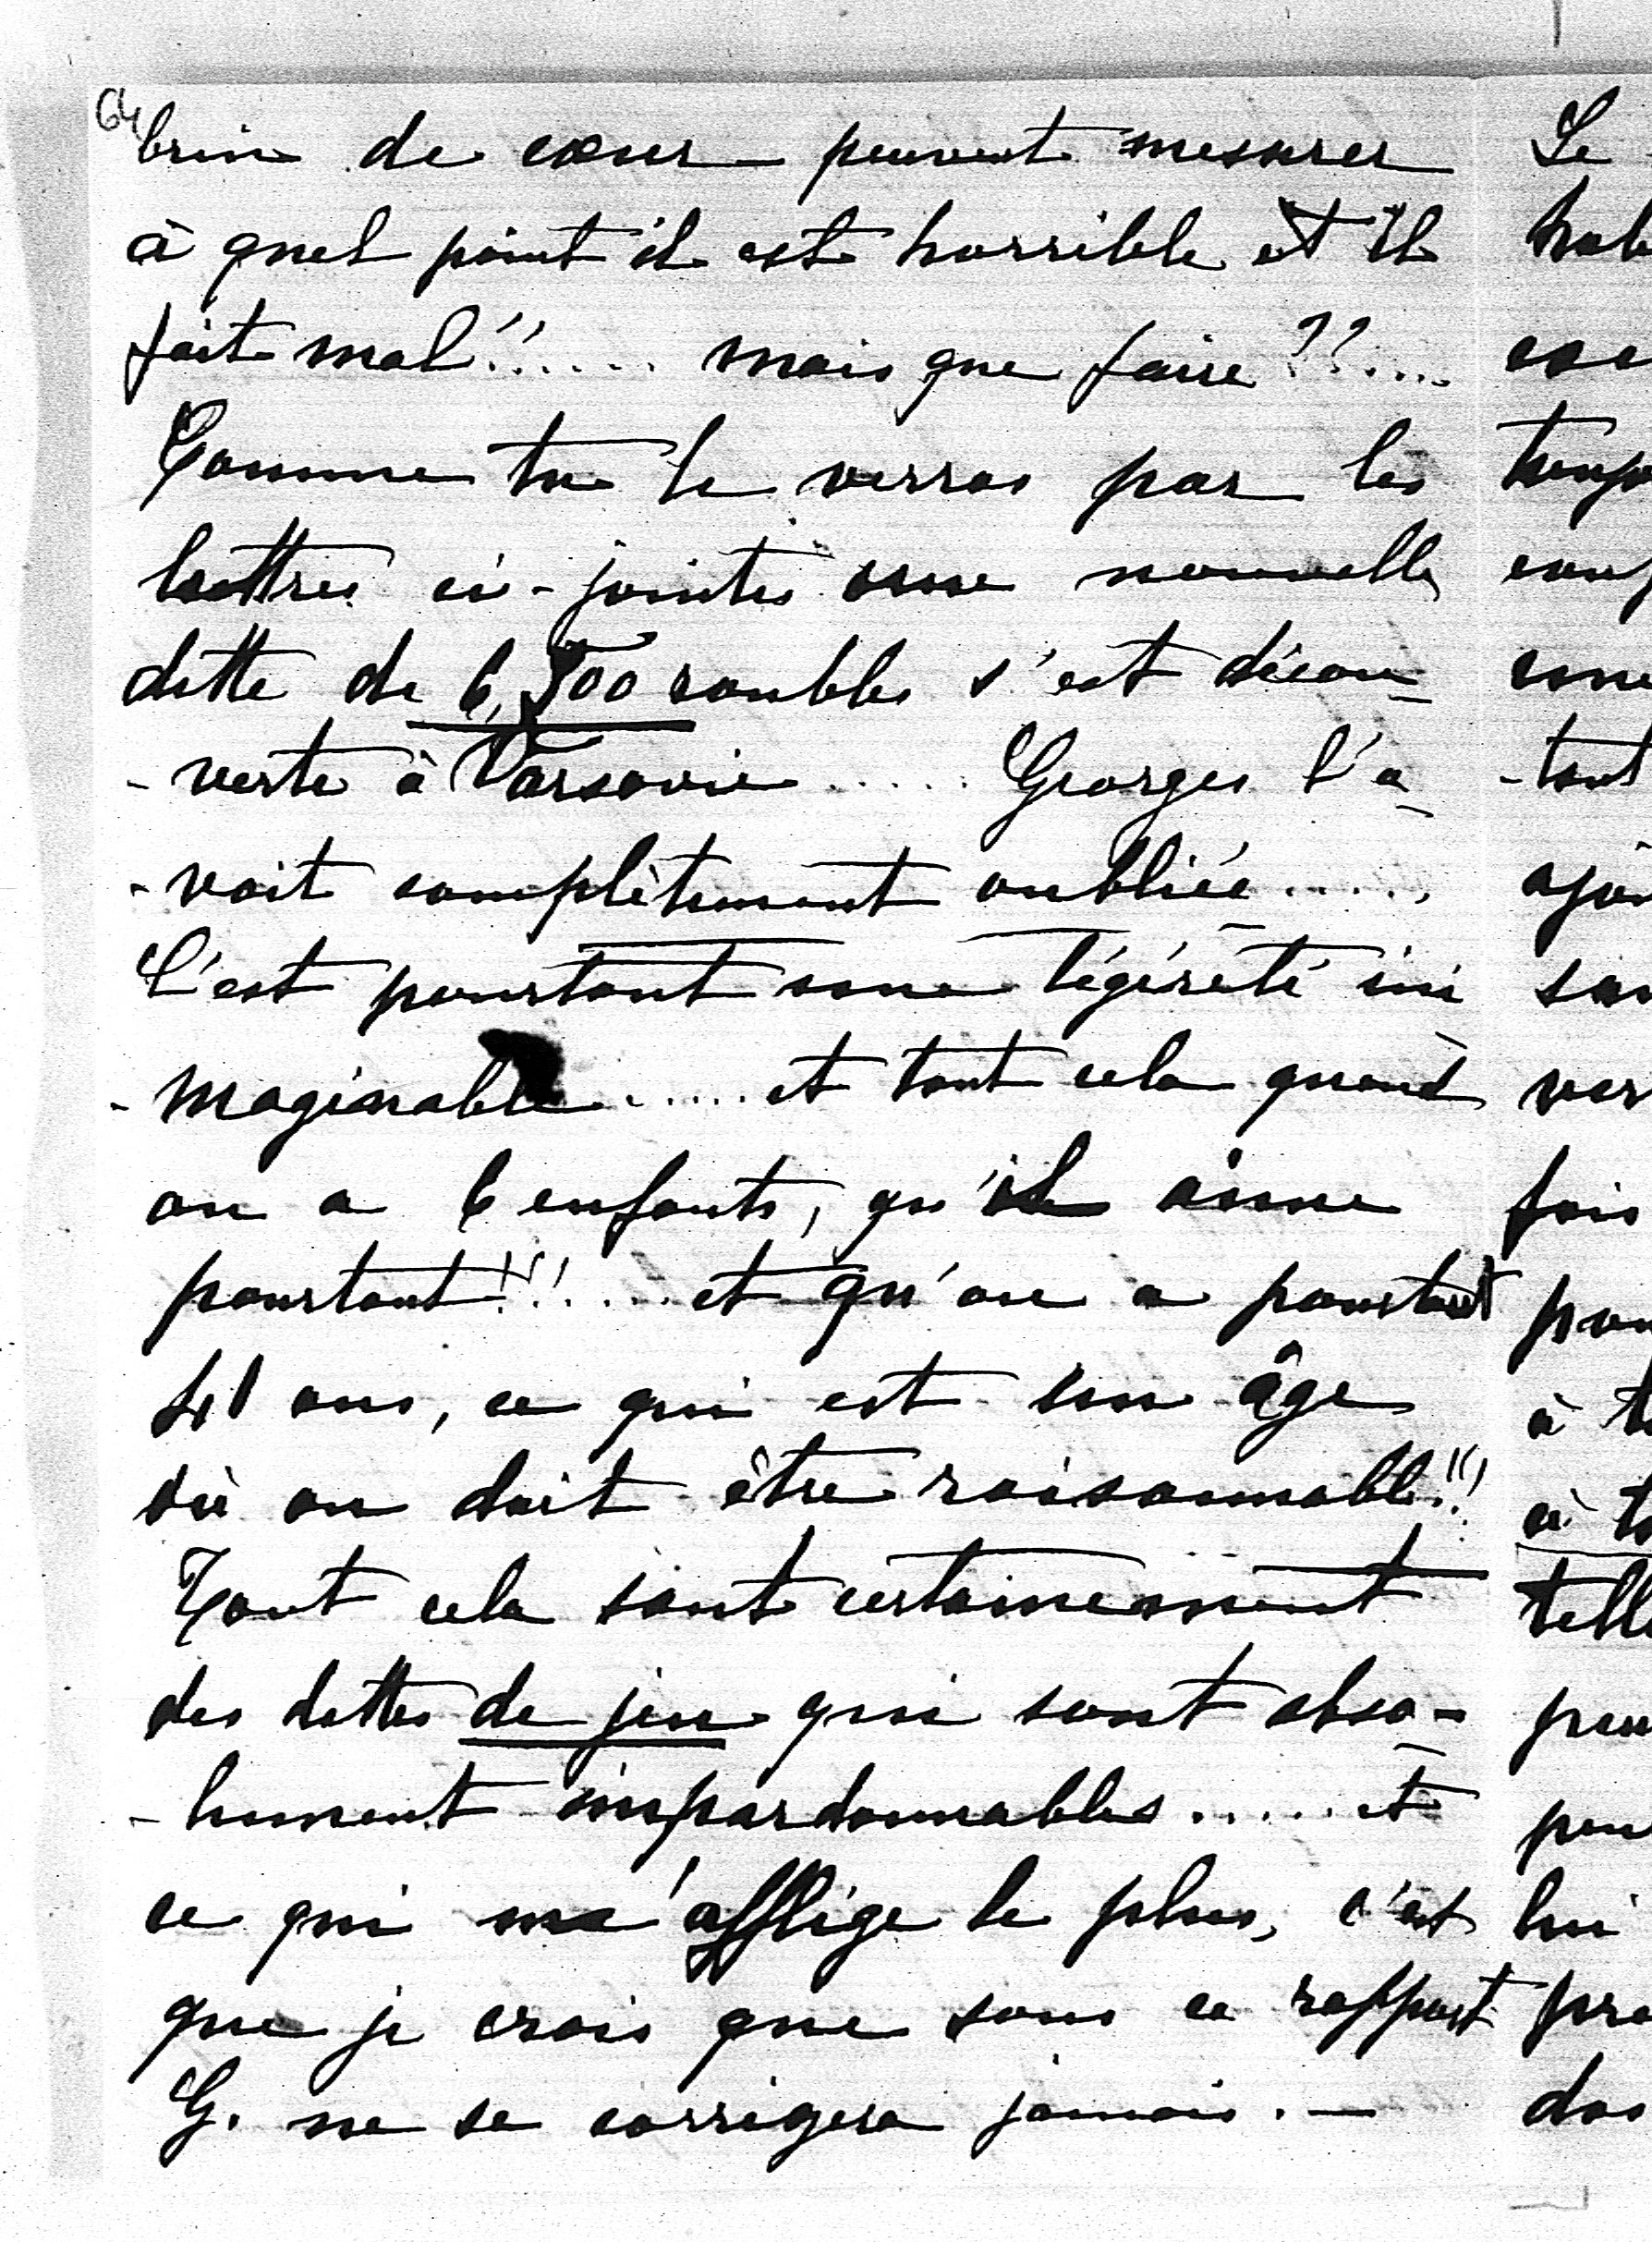 64
brin de cœur – peuvent mesurer
à quel point il est horrible et il
fait mal!!...... mais que faire??....
Comme tu le verras par les
lettres ci-jointes une nouvelle
dette de 6,500 roubles s'est décou-
-verte à Varsovie ..... Georges l'a-
-vait complètement oubliée.....
C'est pourtant une légèreté ini
-maginable......et tout cela quand
on a 6 enfants, qu'il aime
pourtant!!!.....et qu'on a pourtant
41 ans, ce qui est un âge
où on doit être raisonnable!!!
Tout cela sont certainement
des dettes de jeu qui sont abso-
-lument impardonnables.....et
ce qui m'afflige le plus, c'est
que je crois que sous ce rapport
G. ne se corrigera jamais. –
Le
tout
fois
à
à
lui